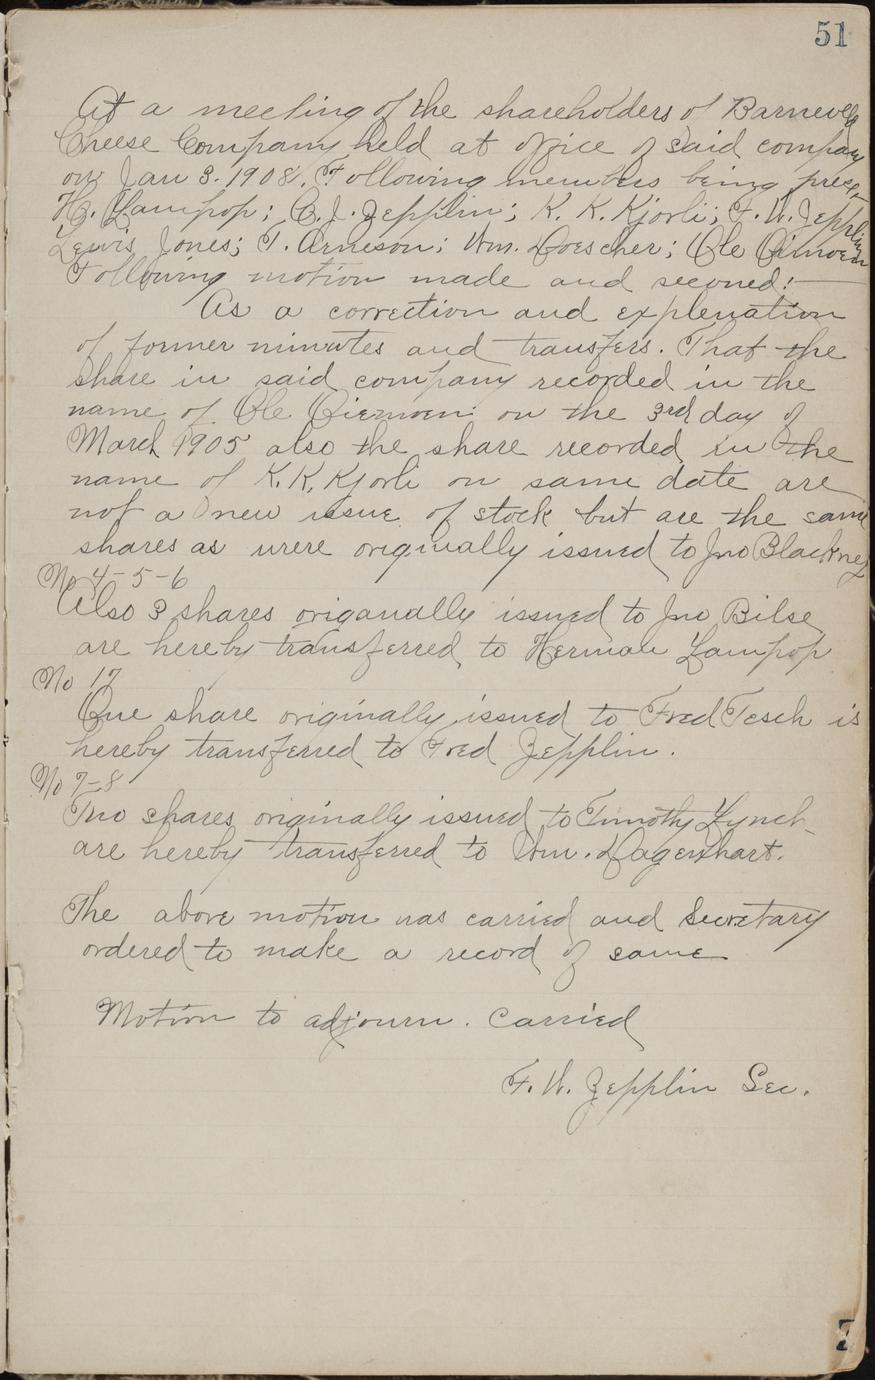 51
At a meeting of the shareholders of Barneveld
Cheese Company held at office of said company
on Jan 3. 1908. Following members being present
H. Lampop; C. J. Zepplin; K. K. Kjorli; F. W. Zepplin
Lewis Jones; T. Arneson; Wm. Doescher; Ole Oimoen
Following motion made and seconed:—
As a correction and explenation
of former minutes and transfers. That the
share in said company recorded in the
name of Ole Oiemoen on the 3rd day of
March 1905 also the share recorded in the
name of K. K. Kjorli on same date are
not a new issue of stock but are the same
shares as were originally issued to Jno Blackney
No 4-5-6
Also 3 shares origanally issued to Jno Bilse
are hereby transferred to Herman Lampop
No 17
One share originally issued to Fred Tesch is
hereby transferred to Fred Zepplin.
No 7-8
Two shares originally issued to Timothy Lynch
are hereby transferred to Wm. Dagenhart.
The above motion was carried and Secretary
ordered to make a record of same
Motion to adjourn. Carried
F. W. Zepplin Sec.